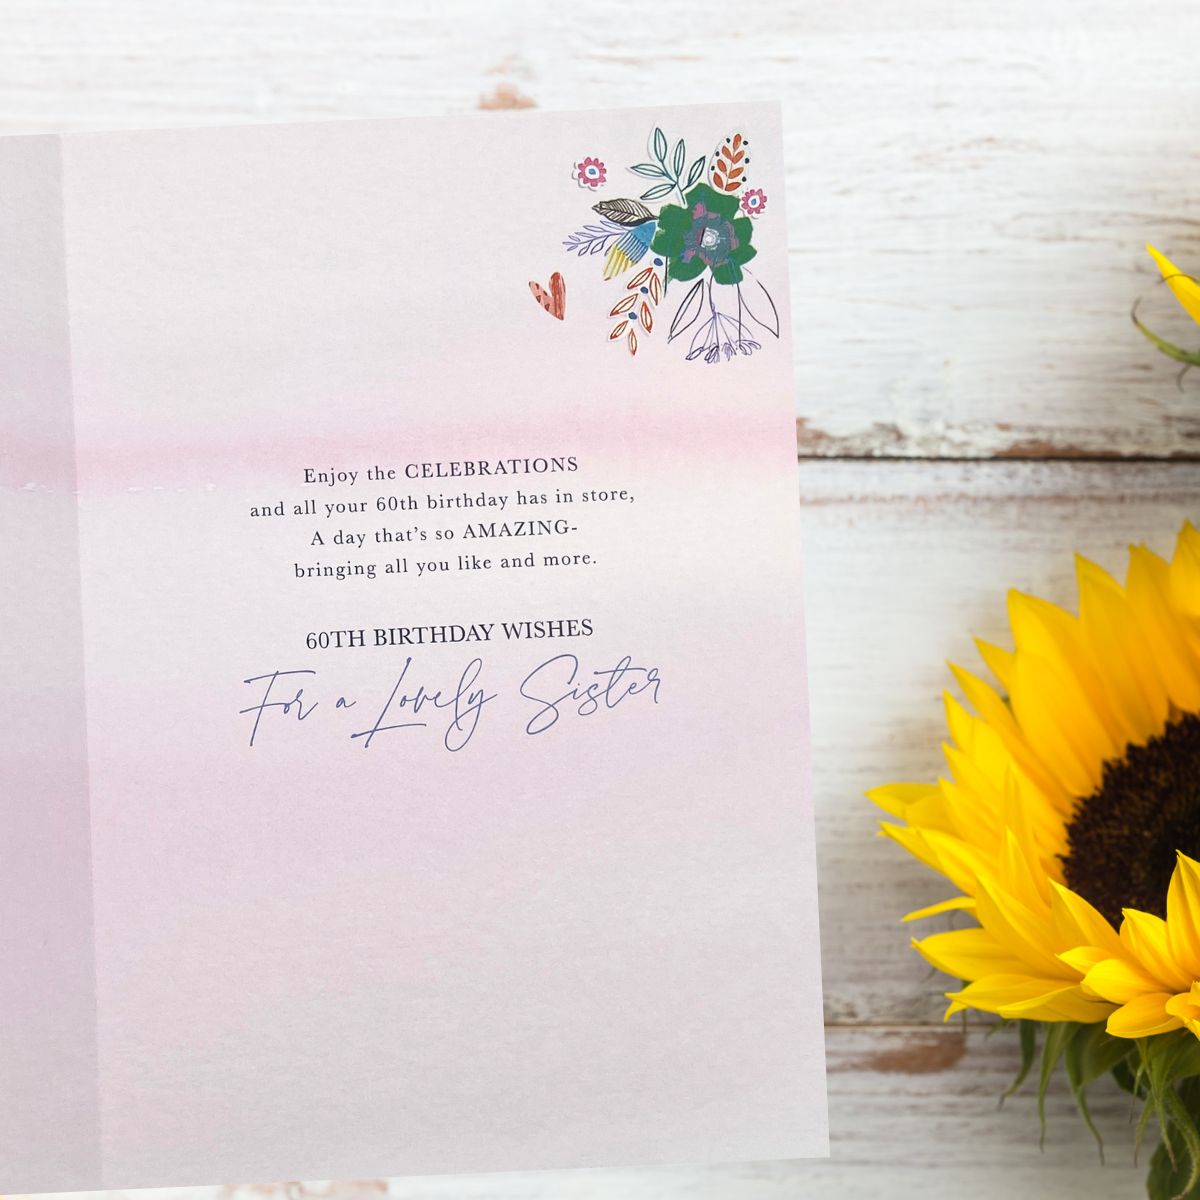 Enjoy the CELEBRATIONS
and all your 60th birthday has in store,
A day that's so AMAZING-
bringing all you like and more.
60TH BIRTHDAY WISHES
For a Lovely Sister